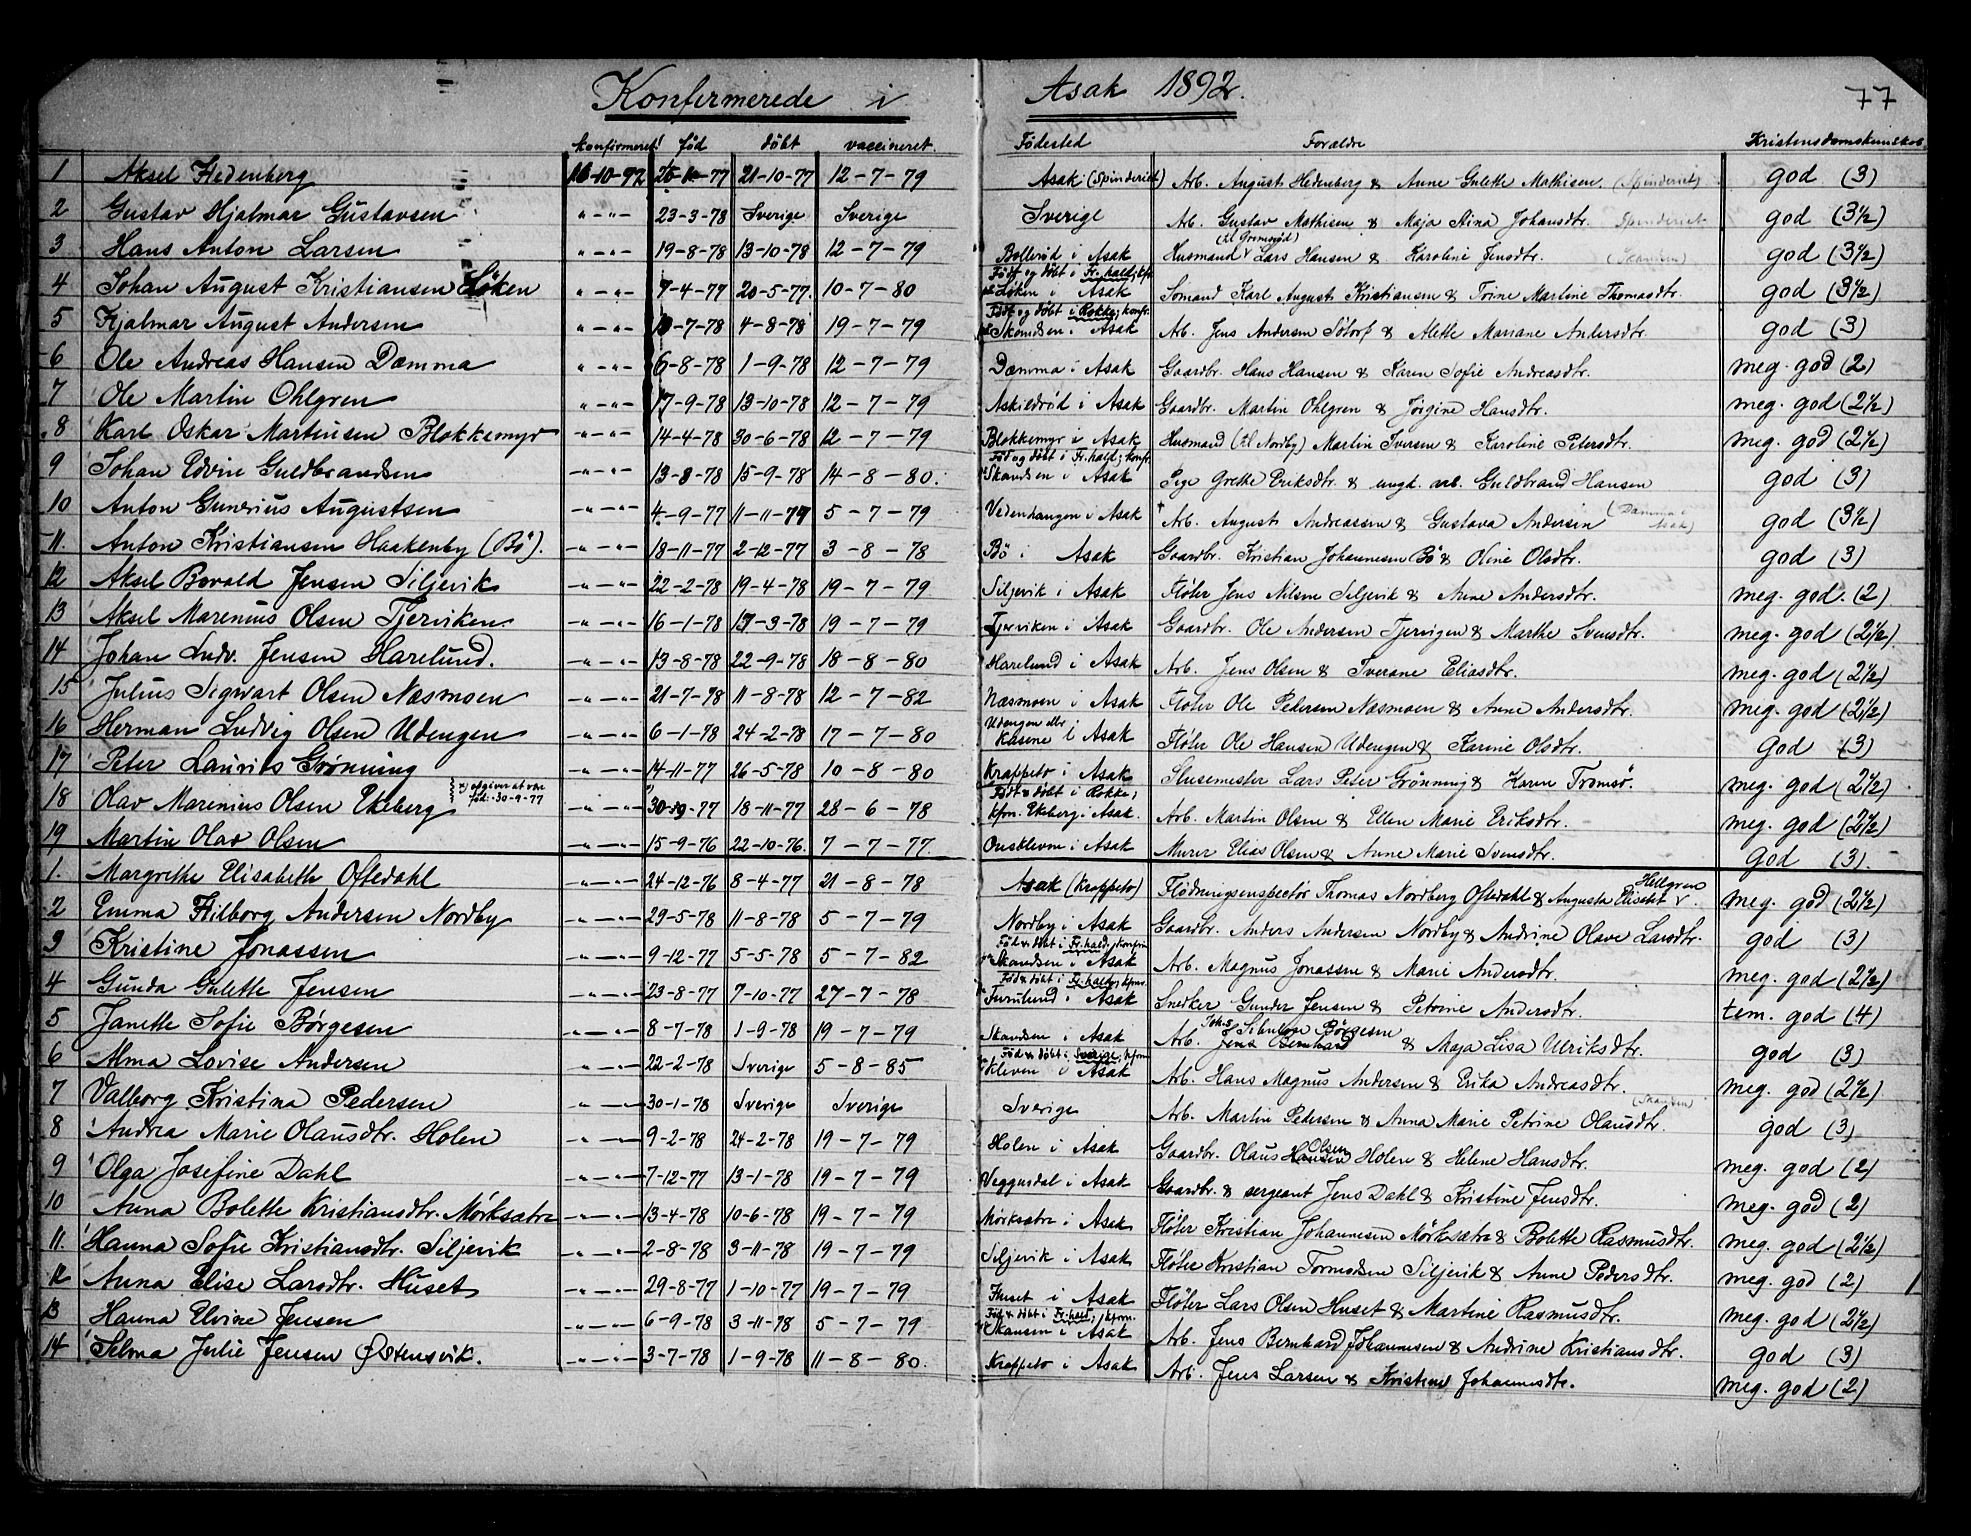 Konfirmerede i Asak 1892. 77
konfirmeret. fød døbt vaccineret. Fødested Forældre Kristendomskundskab.
1 Aksel Hedenberg 16-10-92 -77 21-10-77 12-7-79 Asak (Spinderiet) Arb. August Hedenberg & Anne Gulette Mathisen. (Spinderiet) god (3)
2 Gustav Hjalmar Gustavsen " — " — 23-3-78 Sverige Sverige Sverige Arb. Gustav Mathisen & Maja Stina Johansdtr. Spinderiet god (3½)
(tl Gremsrød)
3 Hans Anton Larsen " — " — 19-8-78 13-10-78 12-7-79 Bollerød i Asak Husmand v Lars Hansen & Karoline Jensdtr. (Skansen) god (3½)
Født og døbt i Fr.hald; kfn.
4 Johan August Kristiansen Løken " — " — 7-4-77 20-5-77. 10-7-80 Løken i Asak Sømand Karl August Kristiansen & Torine Martine Thomasdtr. god (3½)
Født og døbt i Rokke; konfr.
5 Hjalmar August Andersen " — " — -7-78 4-8-78 19-7-79 Skandsen i Asak Arb. Jens Andersen Søtorf & Alette Mariane Andersdtr. god (3)
6 Ole Andreas Hansen Damma " — " — 6-8-78 1-9-78 12-7-79 Damma i Asak Gaardbr. Hans Hansen & Karen Sofie Andreasdtr. meg. god (2)
7 Ole Martin Ohlgren " — " — 17-9-78 13-10-78 12-7-79 Askildrød i Asak Gaardbr. Martin Ohlgren & Jørgine Hansdtr. meg. god (2½)
8 Karl Oskar Martinsen Blokkemyr " — " — 14-4-78 30-6-78 12-7-79 Blokkemyr i Asak Husmand (tl Nordby) Martin Iversen & Karoline Petersdtr. meg. god (2½)
Fød og døbt i Fr.hald; konfr.
9 Johan Edvin Guldbrandsen " — " — 13-8-78 15-9-78 14-8-80. Skandsen i Asak Pige Grethe Eriksdtr. & ungk. arb. Guldbrand Hansen god (3)
10 Anton Gunerius Augustsen " — " — 4-9-77 11-11-77 5-7-79 Vedenhaugen i Asak † Arb. August Andreassen & Gustava Andersen (Damma i Asak) god (3½)
11. Anton Kristiansen Haakenby (Bö). " — " — 18-11-77 2-12-77 3-8-78 Bö i Asak Gaardbr. Kristian Johannesen Bö & Oline Olsdtr. god (3)
12 Aksel Bovald Jensen Siljevik " — " — 22-2-78 19-4-78 19-7-79 Siljevik i Asak Fløter Jens Nilsen Siljevik & Anne Andersdtr. meg. god. (2)
13 Aksel Marenius Olsen Tjerviken. " — " — 16-1-78 17-3-78 19-7-79 Tjerviken i Asak Gaardbr. Ole Andersen Tjervigen & Marthe Svensdtr. meg. god (2½)
14 Johan Ludv. Jensen Harelund. " — " — 13-8-78 22-9-78 18-8-80 Harelund i Asak Arb. Jens Olsen & Sverane Eliasdtr. meg. god (2½)
15 Julius Sigwart Olsen Næsmoen " — " — 21-7-78 11-8-78 12-7-82 Næsmoen i Asak Fløter Ole Pedersen Næsmoen & Anne Andersdtr. meg. god (2½)
16 Herman Ludvig Olsen Udengen " — " — 6-1-78 24-2-78 17-7-80 Udengen ell. Kasene i Asak Fløter Ole Hansen Udengen & Karine Olsdtr. god (3)
17 Peter Laurits Grönning " — " — 14-11-77 26-5-78 10-8-80 Krappeto i Asak Slusemester Lars Peter Grönning & Karen Tromsø. meg. god (2½)
x) opgiver at være fød: 30-9-77 Født & døbt i Rokke;
18 Olav Marenius Olsen Ekeberg " — " — 30- -77 18-11-77 28-6-78 kfrn. Ekeberg i Asak. Arb. Martin Olsen & Ellen Marie Eriksdtr. meg. god (2½)
19 Martin Olav Olsen " — " — 15-9-76 22-10-76. 7-7-77 i Asak Murer Elias Olsen & Anne Marie Svensdtr. god (3).
1. Margrethe Elisabeth Oftedahl " — " — 24-12-76 8-4-77 21-8-78 Asak (Krappeto) Flødningsinspectør Thomas Nordberg Oftedahl & Augusta Elisabet v Hellgren. meg. god (2½)
2 Emma Hilborg Andersen Nordby " — " — 29-5-78 11-8-78 5-7-79 Nordby i Asak Gaardbr. Anders Andersen Nordby & Andrine Olave Larsdtr. god (3)
Fød & døbt i Fr.hald; konfrm
3 Kristine Jonassen " — " — 9-12-77 5-5-78 5-7-82 Skandsen i Asak Arb. Magnus Jonassen & Marie Andersdtr. meg. god (2½)
Fød & døbt i Fr.hald; kfrn.
4 Gunda Gulette Jensen " — " — 23-8-77 7-10-77 27-7-78 Furulund i Asak Snedker Gunder Jensen & Petrine Andersdtr. tem. god (4)
5 Janette Sofie Börgesen " — " — 8-7-78 1-9-78 19-7-79 Skandsen i Asak Arb. Jens Bernhard Johs Börgesen & Maja Lisa Ulriksdtr. god (3)
Fød & døbt i Sverige; kfrn
6 Alma Lovise Andersen " — " — 22-2-78 Sverige 5-8-85 Kleven i Asak Arb. Hans Magnus Andersen & Erika Andreasdtr. meg. god (2½)
7 Valborg Kristina Pedersen " — " — 30-1-78 Sverige Sverige Sverige Arb. Martin Petersen & Anna Marie Petrine Olausdtr. (Skansen) god (3)
8 Andrea Marie Olausdtr. Holen " — " — 9-2-78 24-2-78 19-7-79 Holen i Asak Gaardbr. Olaus Hansen Olsen Holen & Helene Hansdtr. meg. god (2)
9 Olga Josefine Dahl " — " — 7-12-77 13-1-78 19-7-79 Veggusdal i Asak Gaardbr. & sergeant Jens Dahl & Kristine Jensdtr. meg. god (2)
10 Anna Bolette Kristiansdtr. Mörksætre " — " — 13-4-78 10-6-78 19-7-79 Mörksætra i Asak Fløter Kristian Johannesen Mörksætra & Bolette Rasmusdtr. meg. god (2½)
11. Hanna Sofie Kristiansdtr. Siljevik " — " — 2-8-78 3-11-78 19-7-79 Siljevik i Asak Fløter Kristian Tormodsen Siljevik & Anne Pedersdtr. meg. god (2)
12 Anna Elise Larsdtr. Huset " — " — 29-8-77 1-10-77 19-7-79 Huset i Asak Fløter Lars Olsen Huset & Martine Rasmusdtr. meg. god (2½)
Fød & døbt i Fr.hald; kfrm.
13 Hanna Elvine Jensen " — " — 6-9-78 3-11-78 5-7-79 Skansen i Asak Arb. Jens Bernhard Johannesen & Andrine Kristiansdtr. god (3)
14 Selma Julie Jensen Østensvik. " — " — 3-7-78 1-9-78 11-8-80. Krappeto i Asak Arb. Jens Larsen & Kristine Johannesdtr. meg. god (2)